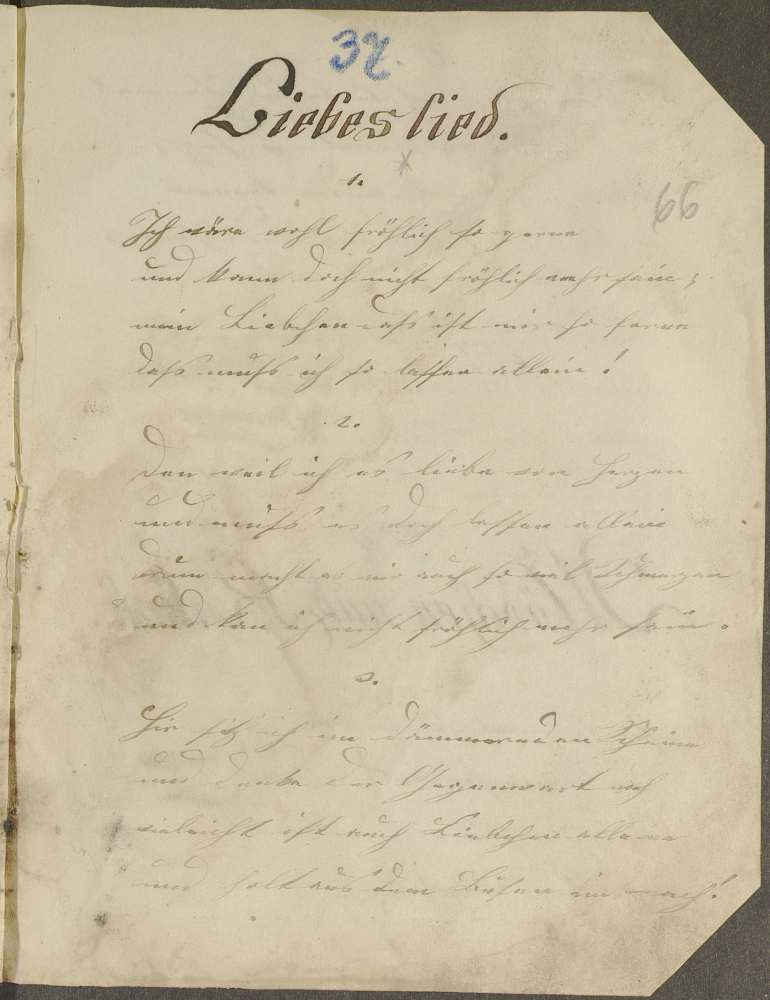 32.
Liebeslied.
1.
66
Ich wäre wohl fröhlich so gerne
und kann doch nicht fröhlich mehr sein;
mein Liebchen das ist mir so ferne
dass muss ich so lassen allein!
2.
Den weil ich es liebe von Herzen
und muss es doch lassen allein
drum macht es mir auch so viel Schmerzen
und kan ich nicht fröhlich mehr sein.
3.
Hir sitz ich im dämmernden Scheine
und denke der Gegenwart nach
vieleicht ist auch Liebchen alleine
und holt aus dem Busen ein ach!